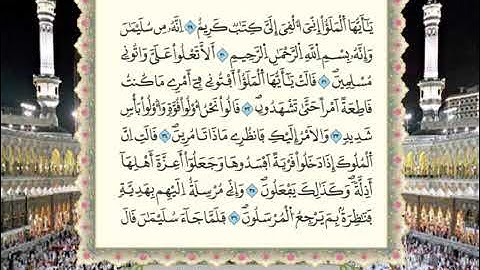 يَٰٓأَيُّهَا اَ۬لْمَلَؤُاْ اِنِّيَ أُلْقِيَ إِلَيَّ كِتَٰبٞ كَرِيمٌ ۝ اِنَّهُۥ مِن سُلَيْمَٰنَ
وَإِنَّهُۥ بِسْمِ اِ۬للَّهِ اِ۬لرَّحْمَٰنِ اِ۬لرَّحِيمِ ۝ أَلَّا تَعْلُواْ عَلَيَّ وَاتُونِي
مُسْلِمِينَۖ ۝ قَالَتْ يَٰٓأَيُّهَا اَ۬لْمَلَؤُاْ اَفْتُونِي فِےٓ أَمْرِے مَا كُنتُ
قَاطِعَةً اَمْراً حَتَّيٰ تَشْهَدُونِۖ ۝ قَالُواْ نَحْنُ أُوْلُواْ قُوَّةٖ وَأُوْلُواْ بَأْسٖ
شَدِيدٖ ۝ وَالَامْرُ إِلَيْكِ فَانظُرِے مَاذَا تَامُرِينَۖ ۝ قَالَتِ اِنَّ
اَ۬لْمُلُوكَ إِذَا دَخَلُواْ قَرْيَةً اَفْسَدُوهَا وَجَعَلُوٓاْ أَعِزَّةَ أَهْلِهَآ
أَذِلَّةٗۖ وَكَذَٰلِكَ يَفْعَلُونَۖ ۝ وَإِنِّي مُرْسِلَةٌ اِلَيْهِم بِهَدِيَّةٖ
فَنَٰظِرَةُۢ بِمَ يَرْجِعُ اُ۬لْمُرْسَلُونَۖ ۝ فَلَمَّا جَآءَ سُلَيْمَٰنَ قَالَ